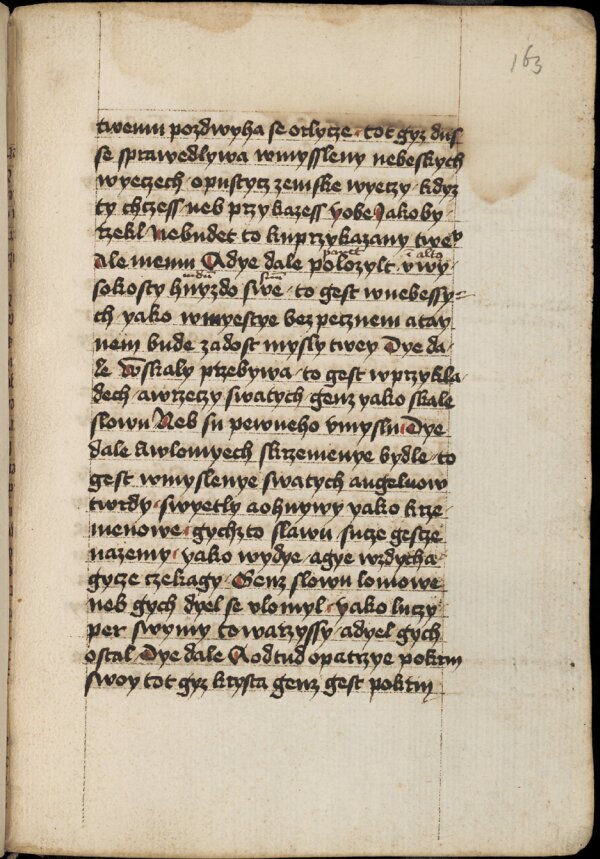 163
twemu pozdwyha se orlycze tot gyz dus
se sprawedlywa wmyssleny nebeskych
wyeczech opustycz zemske wyeczy kdyz
ty chczess neb przykazess yobe Jakoby
rzekl Nebudet to kuprzykazany twe
ale memu Adye dale polozylt vwy
sokosty hnyzdo swe to gest wnebessy
ch yako wmyestye bezpecznem atay
nem bude zadost mysly twey Dye da
le Wskaly przebywa to gest wprzykla
dech awrzeczy swatych genz yako skale
slowu Neb su pewneho vmyslu Dye
dale Awlomyech skrzemenye bydle to
gest wmyslenye swatych angeluow
twrdy swyetly aohnywy yako krze
menowe gychzto slawu sucze gescze
nazemy yako wydye agye wzdycha
gycze czekagy Genz slowu lomowe
neb gych dyel se vlomyl yako luczy
per swymy towarzyssy adyel gych
ostal Dye dale Aodtud opatrzye pokrm
swoy tot gyz krysta genz gest pokrm